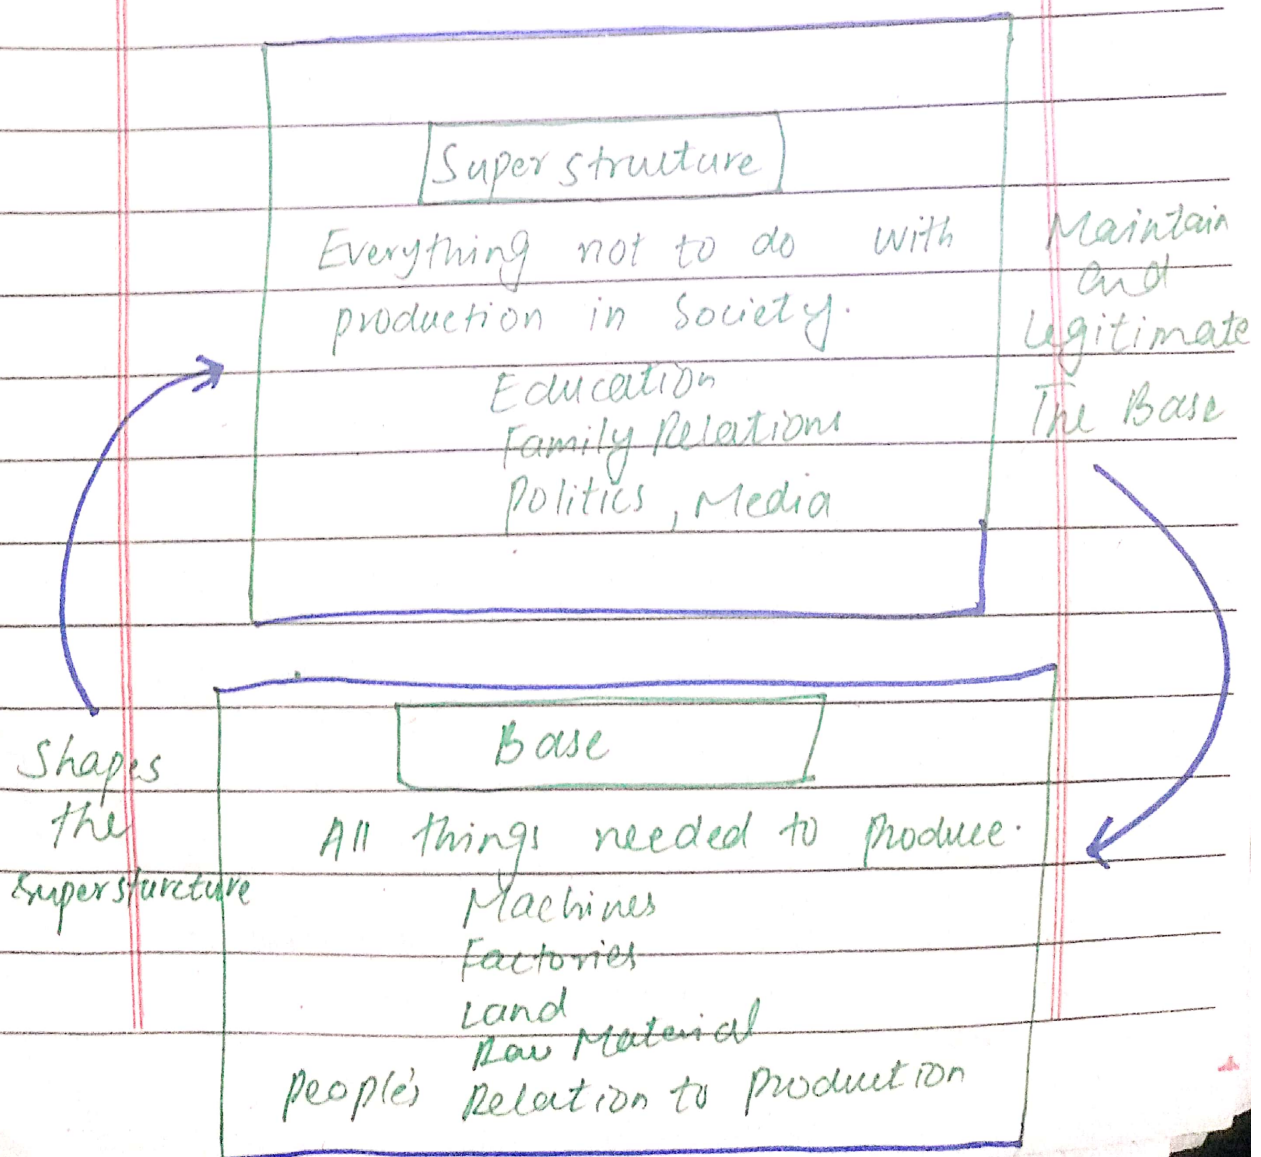 Superstructure
Everything not to do with
production in Society.
Education
Family Relations
Politics, Media
Maintain
and
Legitimate
The Base
Shapes
the
Supersturcture
Base
All things needed to Produce.
Machines
Factories
Land
Raw Material
People's Relation to Production